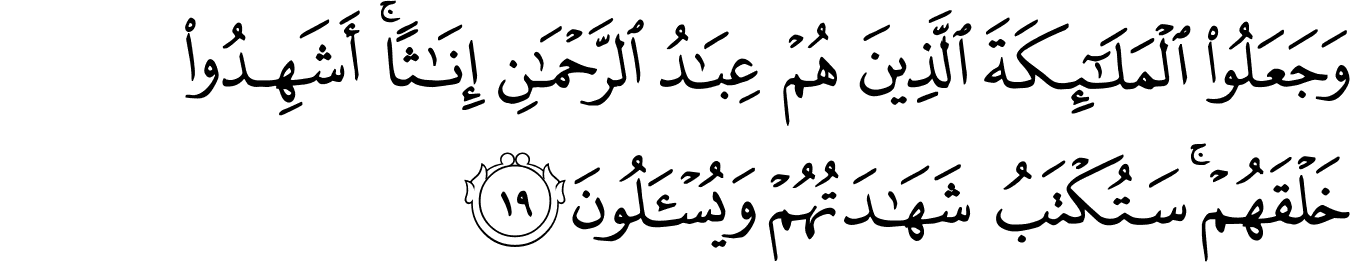 وَجَعَلُوا۟ ٱلْمَلَـٰٓئِكَةَ ٱلَّذِينَ هُمْ عِبَـٰدُ ٱلرَّحْمَـٰنِ إِنَـٰثًا ۚ أَشَهِدُوا۟
خَلْقَهُمْ ۚ سَتُكْتَبُ شَهَـٰدَتُهُمْ وَيُسْـَٔلُونَ ١٩